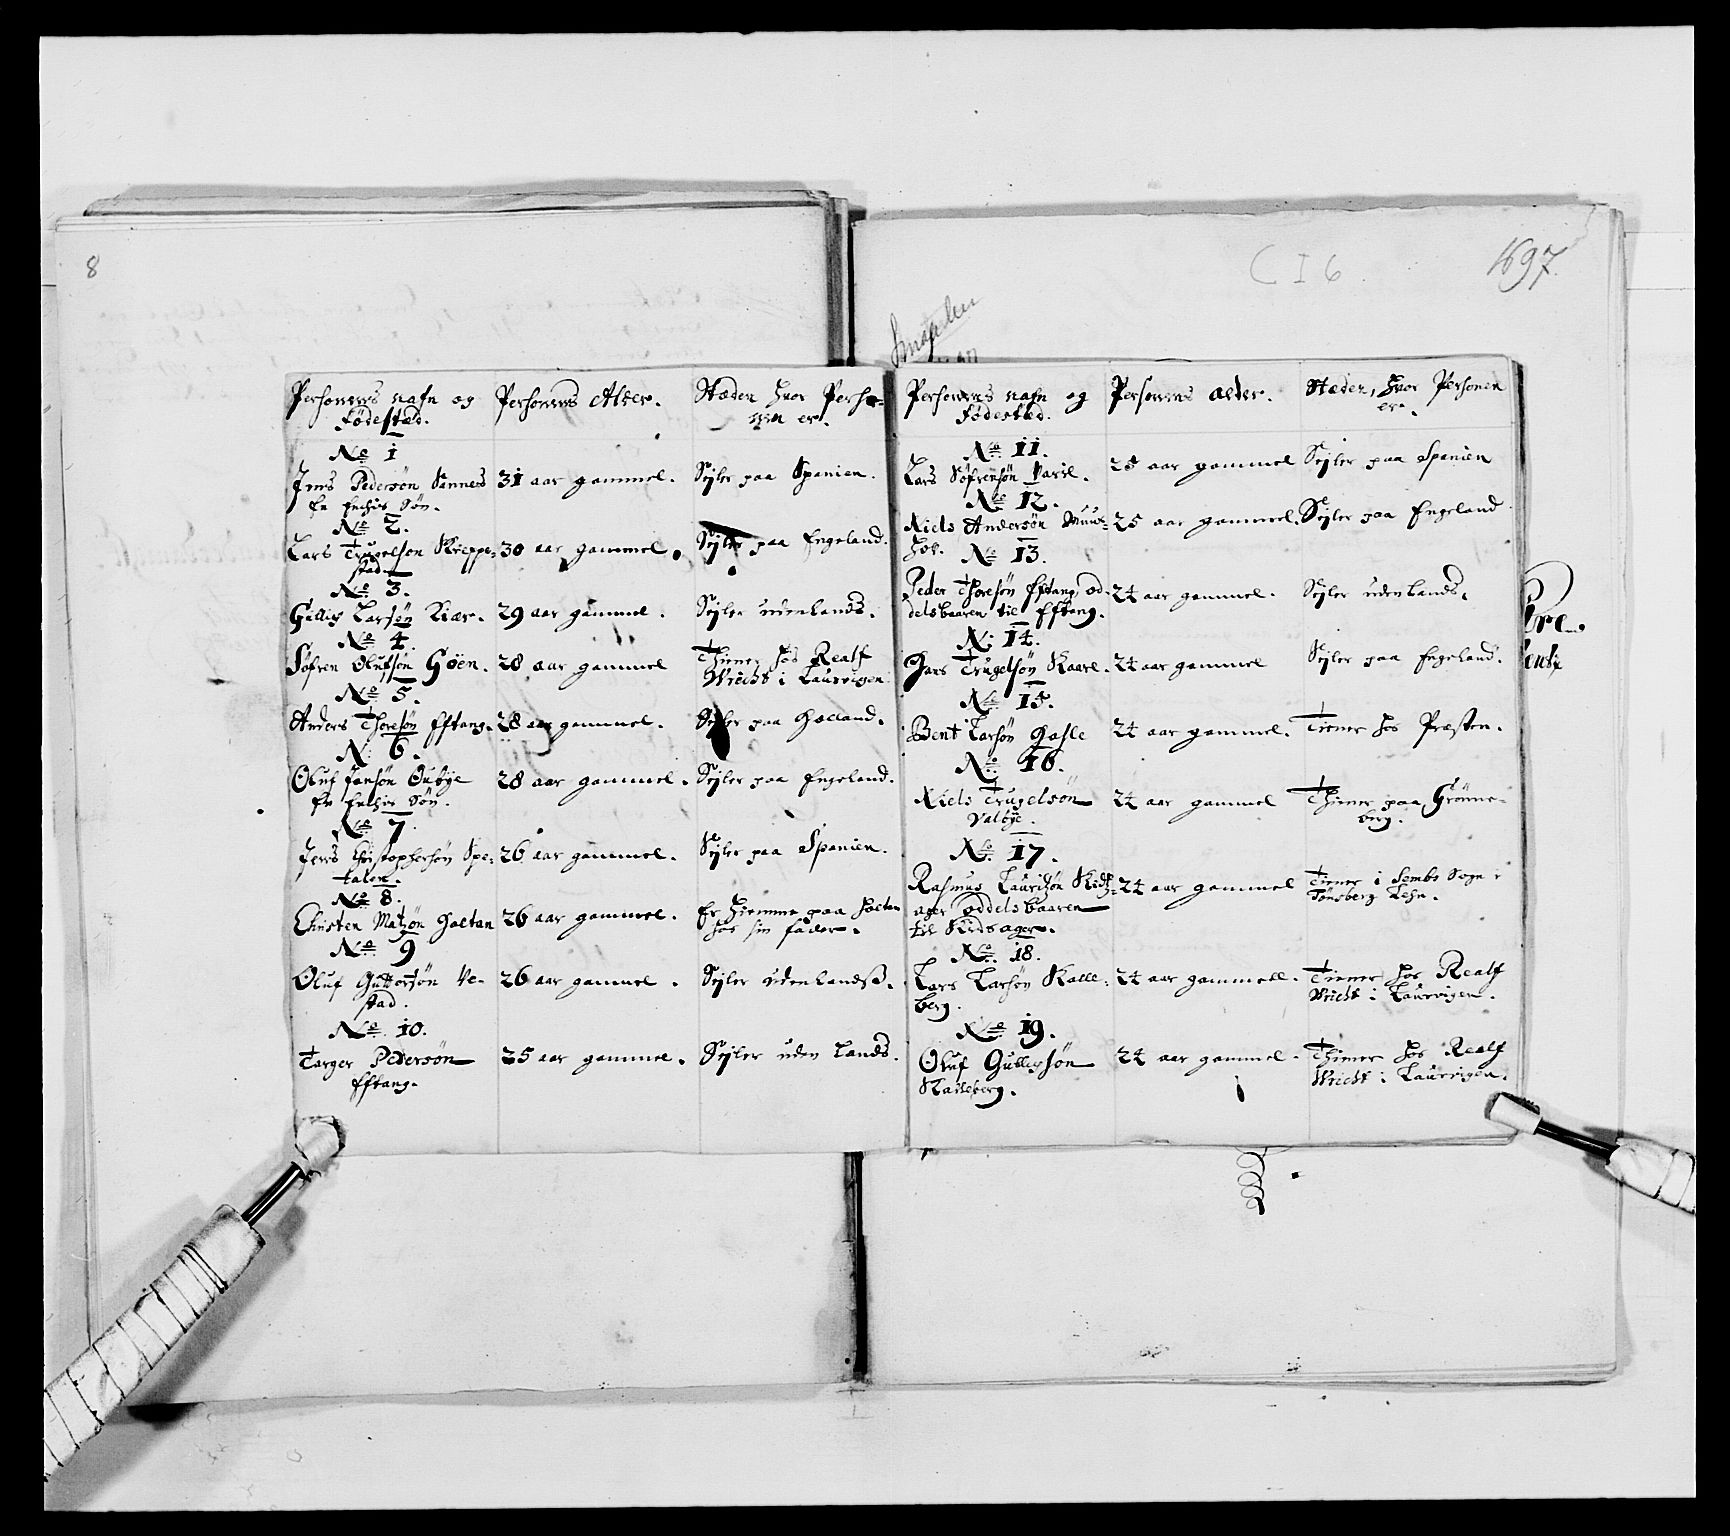 8
C I 6
1697.
Personens nafn og
Fødested.
Personens Alder.
Stæden hvor Perso-
nen er.
No 1
Jens Pedersøn Sannes
En Enchis Søn.
31 aar gammel.
Sejler paa Spanien.
No 2.
Lars Trugelsøn Skreppe-
stad
30 aar gammel.
Sejler paa Engeland.
No 3.
Gullig Larsøn Kiær.
29 aar gammel.
Sejler uden Lands.
No 4.
Søfren Olufsøn Goen.
28 aar gammel
Thiener hos Realf
Wricht i Laurvigen
No 5.
Anders Thoresøn Efftang.
28 aar gammel.
Sejler paa Holland.
No 6.
Oluf Jansøn Oubye
En Enchis Søn.
28 aar gammel.
Sejler paa Engeland.
No 7.
Jens Christophersøn Spe-
talen.
26 aar gammel.
Sejler paa Spanien.
No 8.
Christen Matzøn Holtan
26 aar gammel.
Er hiemme paa Holtan
hos sin fader.
No 9
Oluf Guttorsøn Ve-
stad.
26 aar gammel.
Sejler uden Landß.
No 10.
Targer Pedersøn
Efftang.
25 aar gammel.
Sejler uden Lands.
Personens nafn og
Fødested.
Personens alder.
Stæden, hvor Personen
er.
No 11.
Lars Søfrensøn Varil.
25 aar gammel
Sejler paa Spanien
No 12.
Niels Andersøn Muur-
hof.
25 aar gammel.
Sejler paa Engeland
No 13.
Peder Thoresøn Efftang od-
delsbaaren til Efftang.
24 aar gammel.
Sejler uden Lands.
No 14.
Hans Trugelsøn Kaare.
24 aar gammel
Sejler paa Engeland.
No 15.
Bent Larsøn Hasle
24 aar gammel.
Tiener hos Præsten.
No 16.
Niels Trugelsøn
Valbye.
24 aar gammel
Thiener paa Grønne-
berg.
No 17.
Rasmus Lauritzøn Kids-
ager oddelsbaaren
til Kidsager.
24 aar gammel
Tiener i Sembs Sogn i
Tønsberg Lehn.
No 18.
Lars Larsøn Kalle-
berg.
24 aar gammell.
Tiener hos Realf
Wricht i Laurvigen.
No 19.
Oluf Gullichsøn
Kalleberg.
24 aar gammel.
Thiener hos Realf
Wricht i Laurvigen.